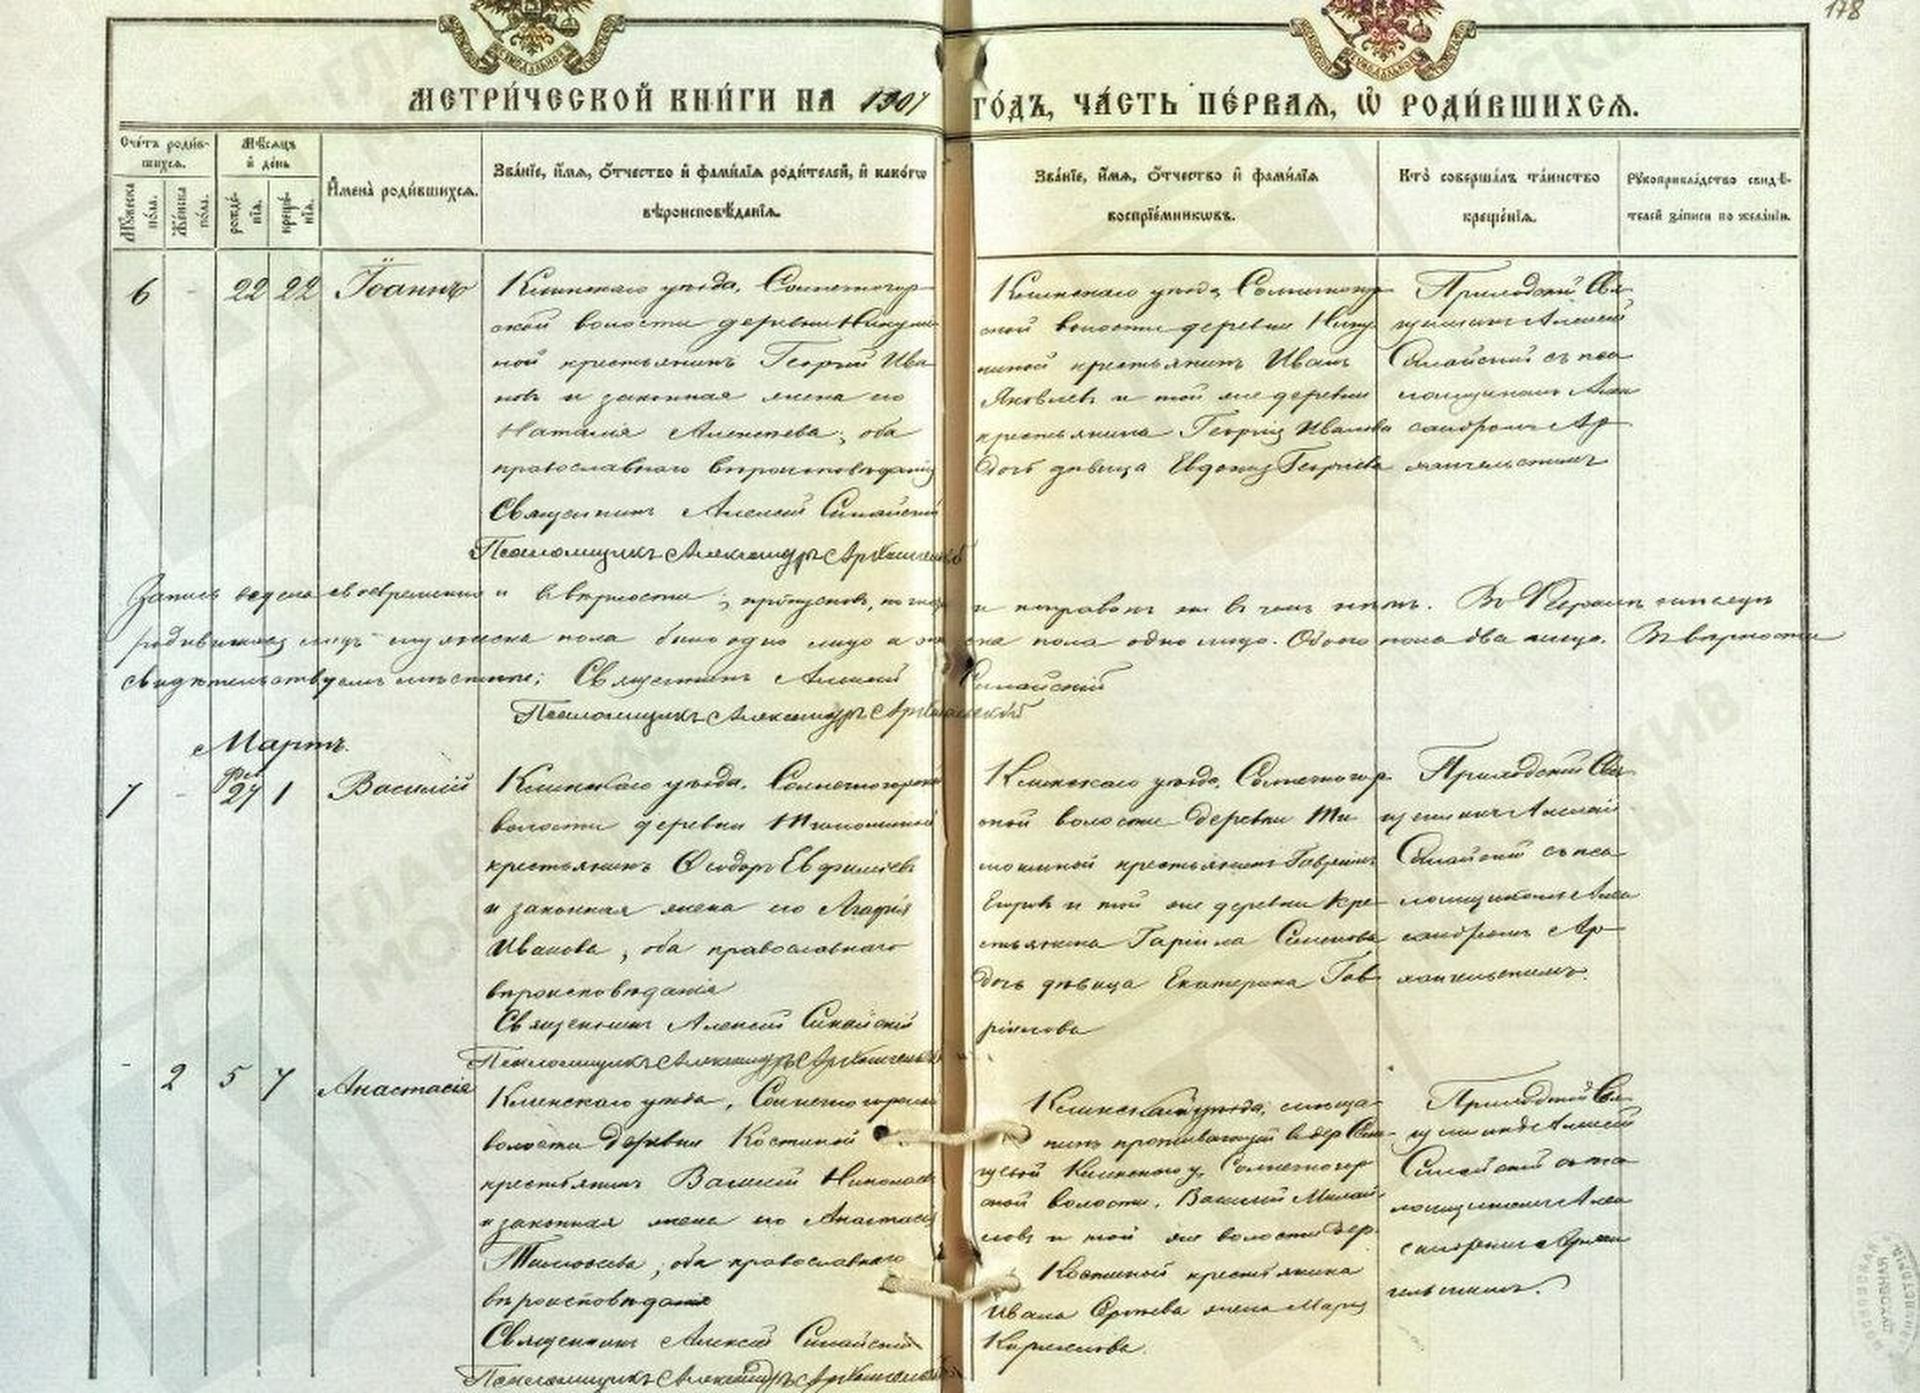 178
МЕТРИ́ЧЕСКОЙ КНИ́ГИ НА 1907 ГО́ДЪ, ЧА́СТЬ ПЕ́РВАЯ, Ѡ РОДИ́ВШИХСЯ.
Сче́тъ роди́вшихся.
Мѣ́сяцъ и҆ де́нь
Мꙋ́жеска по́ла.
Же́нска по́ла.
рожде́нїя.
креще́нїя.
И҆мена̀ роди́вшихся.
Зва́нїе, и҆́мя, ѻ҆́тчество и҆ фами́лїя роди́телей, и҆ како́гѡ
вѣроисповѣ́данїя.
Зва́нїе, и҆́мя, ѻ҆́тчество и҆ фами́лїя
воспрїе́мникѡвъ.
Кто̀ соверша́лъ та́инство
креще́нїя.
Рꙋкоприкла́дство свидѣ́-
телей за́писи по жела́нїю.
6 - 22 22 Іоаннъ
Клинскаго уѣзда, Солнечногор
ской волости деревни Никули
ной крестьянинъ Георгій Ива
новъ и законная жена его
Наталия Алексѣева, оба
православнаго вѣроисповѣданія
Священникъ Алексій Синайскій
Псаломщикъ Александръ Архангельскій
Клинскаго уѣзда, Солнечногор
ской волости деревни Нику
линой крестьянинъ Иванъ
Яковлевъ и той же деревни
крестьянина Георгія Иванова
дочь дѣвица Евдокія Георгіева
Приходскій Свя
щенникъ Алексій
Синайскій съ пса
ломщикомъ Алек
сандромъ Ар
хангельскимъ
Запись ведена своевременно и въ вѣрности; пропусковъ, и поправокъ ни въ чемъ нѣтъ. Въ Февралѣ мѣсяцѣ
родившихся лицъ мужеска пола было одно лицо а женска пола одно лицо. Обоего пола два лица. Въ вѣрности
свидѣтельствуемъ мѣстные; Священникъ Алексій Синайскій
Псаломщикъ Александръ Архангельскій
Мартъ.
7 - Фев 27 1 Василій
Клинскаго уѣзда, Солнечногорской
волости деревни Тимониной
крестьянинъ Ѳеодоръ Евфиміевъ
и законная жена его Агафія
Иванова, оба православнаго
вѣроисповѣданія
Священникъ Алексій Синайскій
Псаломщикъ Александръ Архангельскій
Клинскаго уѣзда, Солнечногор
ской волости деревни Ти
мониной крестьянинъ Гавріилъ
Егоровъ и той же деревни кре
стьянина Гаріила Семенова
дочь дѣвица Екатерина Гав
ріилова
Приходскій Свя
щенникъ Алексій
Синайскій съ пса
ломщикомъ Алек
сандромъ Ар
хангельскимъ.
- 2 5 7 Анастасія
Клинскаго уѣзда, Солнечногорской
волости деревни Костиной
крестьянинъ Василій Николаевъ
и законная жена его Анастасія
Тимоѳеева, оба православнаго
вѣроисповѣданія
Священникъ Алексій Синайскій
Псаломщикъ Александръ Архангельскій
уѣзда, мѣща
нинъ проживающій в дер
Клинскаго у. Солнечногор
ской волости, Василій Михай
ловъ и той же волости дер.
Костиной крестьянина
Ивана Сергѣева жена Марія
Кириллова.
Приходскій Свя
щенникъ Алексій
Синайскій съ пса
ломщикомъ Алек
сандромъ Архан
гельскимъ.